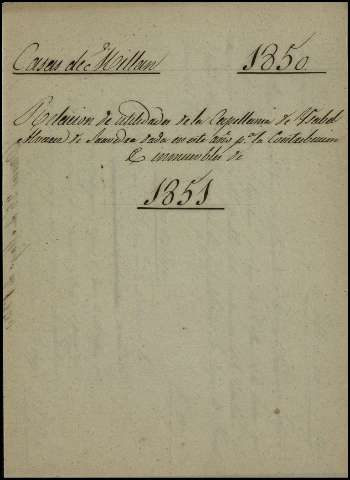 Casas de Millan 1850
Relacion de utilidades de la Capellania de Ysabel
de Saavedra dada en este año pª la Contribucion
de inmuebles de
1851